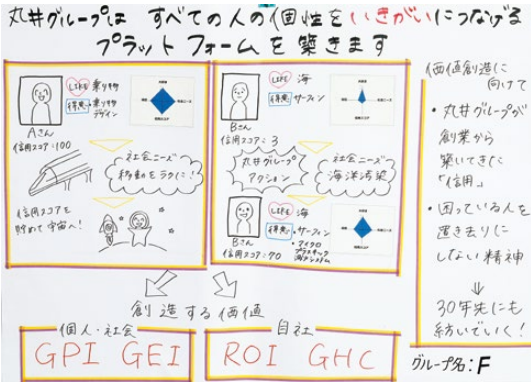 丸井グループは すべての人の個性をいきがいにつなげる
プラットフォームを築きます
LIKE 乗り物
得意 乗り物
デザイン
Aさん
信用スコア:100
社会ニーズ
移動をラクに!
信用スコアを
貯めて宇宙へ!
LIKE 海
得意 ・サーフィン
Bさん
信用スコア:3
丸井グループ
アクション
社会ニーズ
海洋汚染
LIKE 海
得意 ・サーフィン
・マイクロ
プラスチック
システム
Bさん
信用スコア:70
価値創造に
向けて
・丸井グループが
創業から
築いてきた
「信用」
・困っている人を
置き去りに
しない精神
30年先にも
紡いでいく!
創造する価値
個人・社会
GPI GEI
自社
ROI GHC
グループ名:F